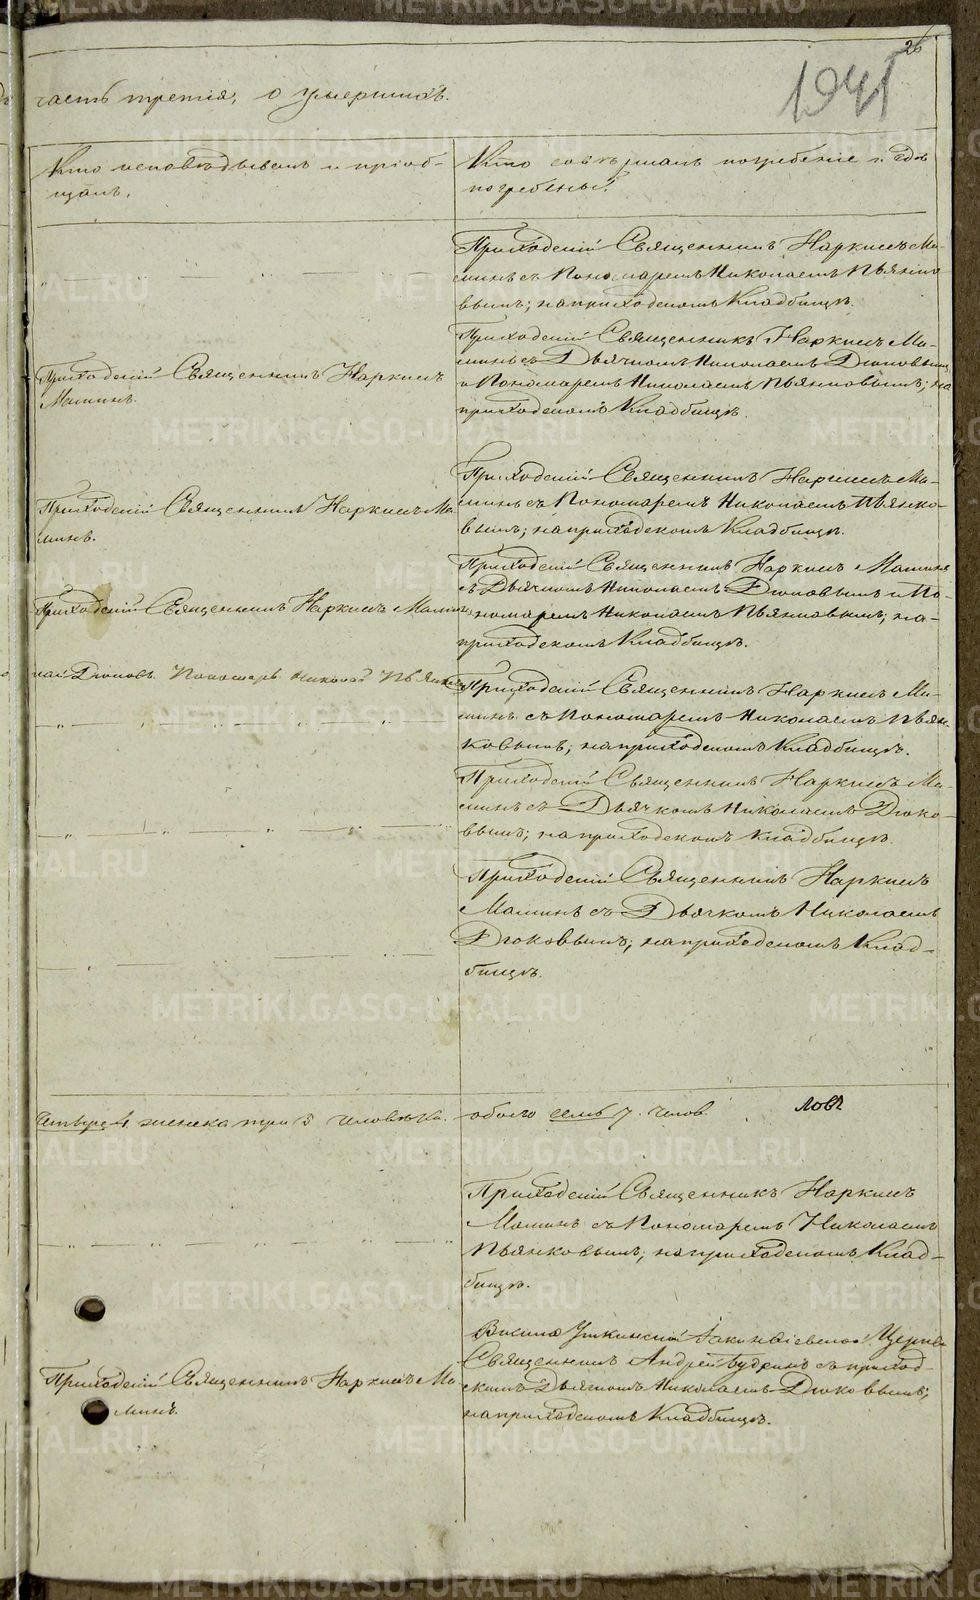 26
1941
часть третія, о умершихъ.
Кто исповѣдывалъ и пріоб-
щалъ.
Кто совершалъ погребеніе и гдѣ
погребены.
Приходскій Священникъ Наркисъ Ма-
минъ съ Пономаремъ Николаемъ Пьянко-
вымъ; на приходскомъ Кладбищѣ.
Приходскій Священникъ Наркисъ
Маминъ.
Приходскій Священникъ Наркисъ Ма-
минъ съ Дьячкомъ Николаемъ Дюковымъ
и Пономаремъ Николаемъ Пьянковымъ; на
приходскомъ Кладбищѣ.
Приходскій Священникъ Наркисъ Ма-
минъ.
Приходскій Священникъ Наркисъ Ма-
минъ съ Пономаремъ Николаемъ Пьянко-
вымъ; на приходскомъ Кладбищѣ.
Приходскій Священникъ Наркисъ Маминъ
Приходскій Священникъ Наркисъ Маминъ
съ Дьячкомъ Николаемъ Дюковымъ и По-
номаремъ Николаемъ Пьянковымъ; на-
приходскомъ Кладбищѣ.
лай Дюковъ. Пономарь Николай Пьянковъ
Приходскій Священникъ Наркисъ Ма-
минъ съ Пономаремъ Николаемъ Пьян-
ковымъ; на приходскомъ Кладбищѣ.
Приходскій Священникъ Наркисъ Ма-
минъ съ Дьячкомъ Николаемъ Дюко-
вымъ; на приходскомъ Кладбищѣ.
Приходскій Священникъ Наркисъ
Маминъ съ Дьячкомъ Николаемъ
Дюковымъ; на приходскомъ Клад-
бищѣ.
Четыре 4, женска три 3 человѣка.
обоего семь 7. челов. ловѣ
Приходскій Священникъ Наркисъ
Маминъ съ Пономаремъ Николаемъ
Пьянковымъ; на приходскомъ Клад-
бищѣ.
Приходскій Священникъ Наркисъ Ма-
минъ.
Висимо Уткинской Церкви
Священникъ Андрей съ приход-
скимъ Дьячкомъ Николаемъ Дюковымъ;
на приходскомъ Кладбищѣ.
METRIKI.GASO-URAL.RU